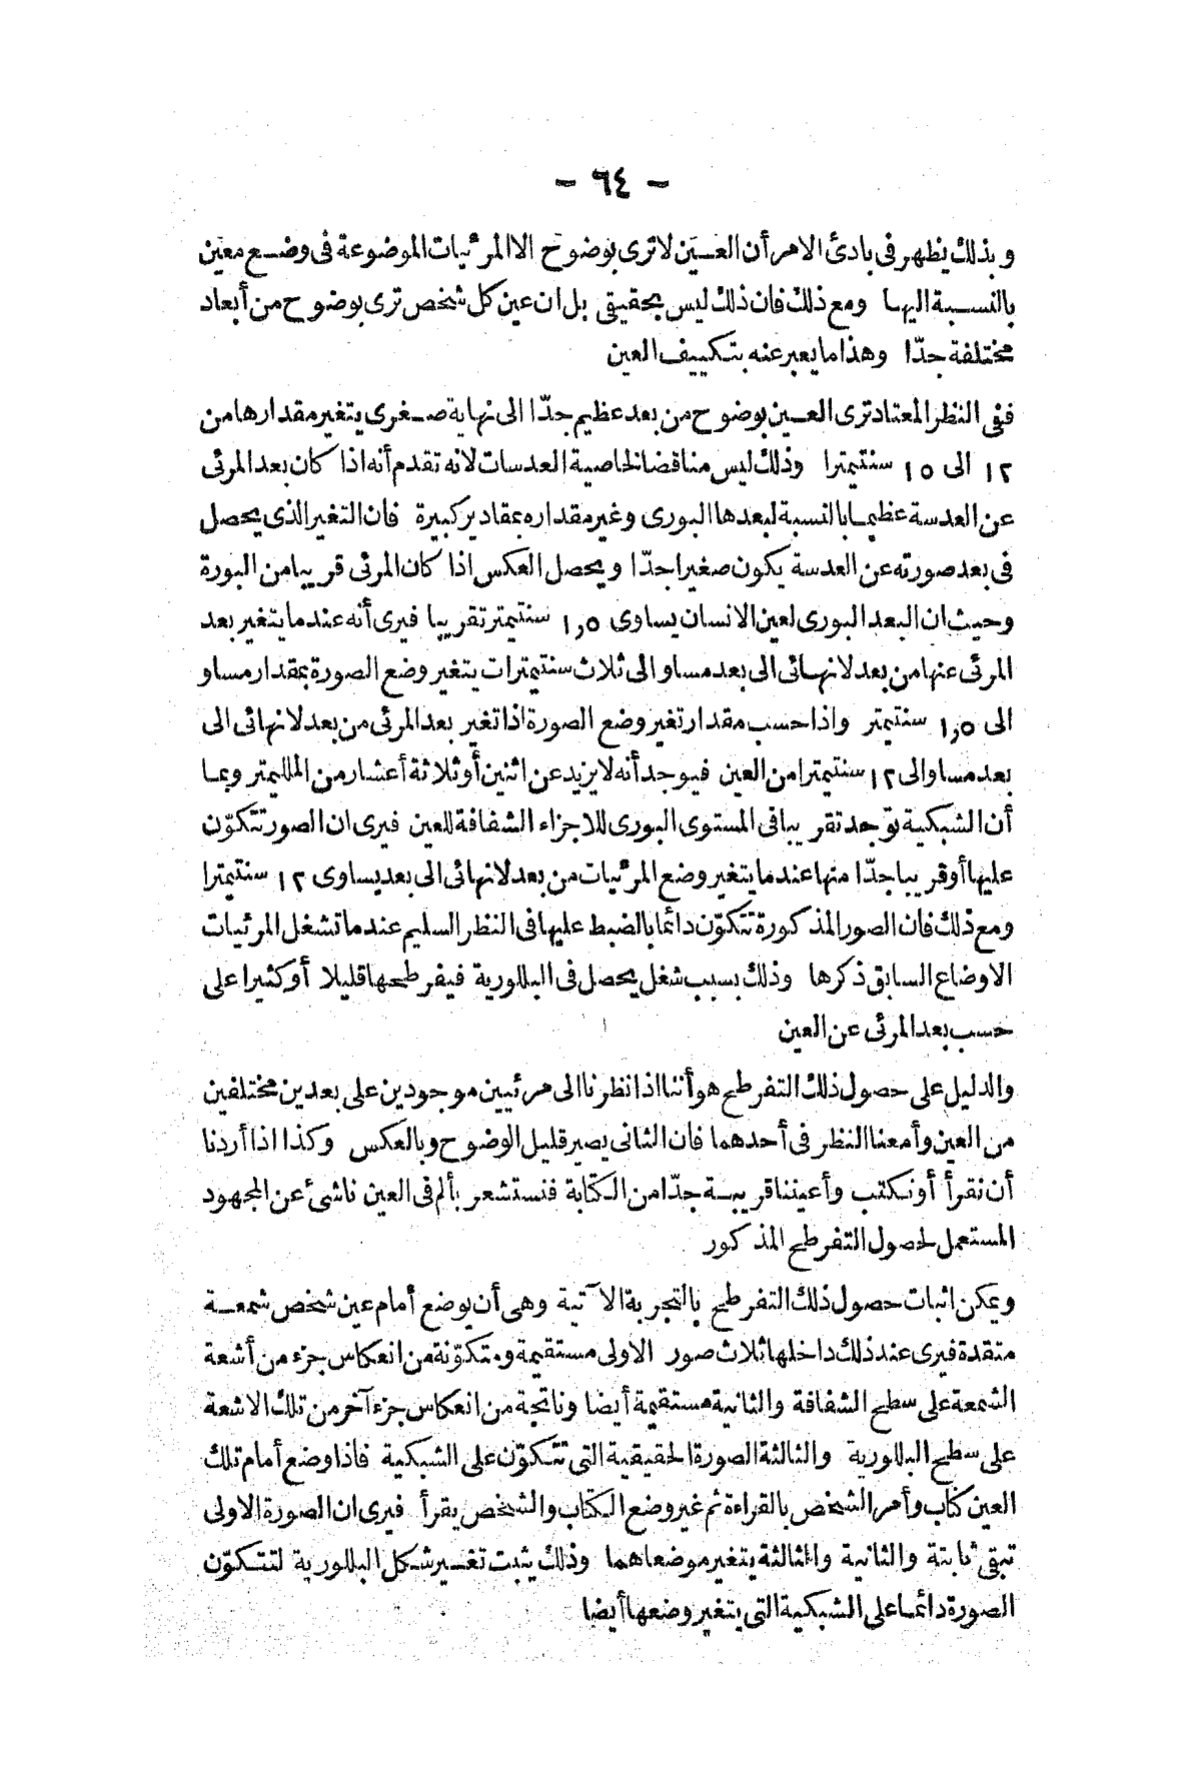 - ٦٤ -
وبذلك يظهر فى بادئ الامر أن العين لا ترى بوضوح الا المرئيات الموضوعة فى وضع معين
بالنسبة اليها ومع ذلك فان ذلك ليس بحقيقى بل ان عين كل شخص ترى بوضوح من أبعاد
مختلفة جدّا وهذا ما يعبر عنه بتكييف العين
ففى النظر المعتاد ترى العين بوضوح من بعد عظيم جدّا الى نهاية صغرى يتغير مقدارها من
١٢ الى ١٥ سنتيمترا وذلك ليس مناقضا لخاصية العدسات لانه تقدم أنه اذا كان بعد المرئى
عن العدسة عظيما بالنسبة لبعدها البورى وغير مقداره بمقادير كبيرة فان التغير الذى يحصل
فى بعد صورته عن العدسة يكون صغيرا جدّا ويحصل العكس اذا كان المرئى قريبا من البورة
وحيث ان البعد البورى لعين الانسان يساوى ١٫٥ سنتيمتر تقريبا فيرى أنه عندما يتغير بعد
المرئى عنها من بعد لا نهائى الى بعد مساو الى ثلاث سنتيمترات يتغير وضع الصورة بمقدار مساو
الى ١٫٥ سنتيمتر واذا حسب مقدار تغير وضع الصورة اذا تغير بعد المرئى من بعد لا نهائى الى
بعد مساو الى ١٢ سنتيمترا من العين فيوجد أنه لا يزيد عن اثنين أو ثلاثة أعشار من المليمتر وبما
أن الشبكية توجد تقريبا فى المستوى البورى للاجزاء الشفافة للعين فيرى ان الصور تتكوّن
عليها أو قريبا جدّا منها عندما يتغير وضع المرئيات من بعد لا نهائى الى بعد يساوى ١٢ سنتيمترا
ومع ذلك فان الصور المذكورة تتكوّن دائما بالضبط عليها فى النظر السليم عندما تشغل المرئيات
الاوضاع السابق ذكرها وذلك بسبب شغل يحصل فى البللورية فيفرطحها قليلا أو كثيرا على
حسب بعد المرئى عن العين
والدليل على حصول ذلك التفرطح هو أننا اذا نظرنا الى مرئيين موجودين على بعدين مختلفين
من العين وأمعنا النظر فى أحدهما فان الثانى يصير قليل الوضوح وبالعكس وكذا اذا أردنا
أن نقرأ أو نكتب وأعيننا قريبة جدّا من الكتابة فنستشعر بألم فى العين ناشئ عن المجهود
المستعمل لحصول التفرطح المذكور
ويمكن اثبات حصول ذلك التفرطح بالتجربة الآتية وهى أن يوضع أمام عين شخص شمعة
متقدة فيرى عند ذلك داخلها ثلاث صور الاولى مستقيمة ومتكوّنة من انعكاس جزء من أشعة
الشمعة على سطح الشفافة والثانية مستقيمة أيضا وناتجة من انعكاس جزء آخر من تلك الاشعة
على سطح البللورية والثالثة الصورة الحقيقية التى تتكوّن على الشبكية فاذا وضع أمام تلك
العين كتاب وأمر الشخص بالقراءة ثم غير وضع الكتاب والشخص يقرأ فيرى ان الصورة الاولى
تبقى ثابتة والثانية والثالثة يتغير موضعاهما وذلك يثبت تغيير شكل البللورية لتتكوّن
الصورة دائما على الشبكية التى يتغير وضعها أيضا